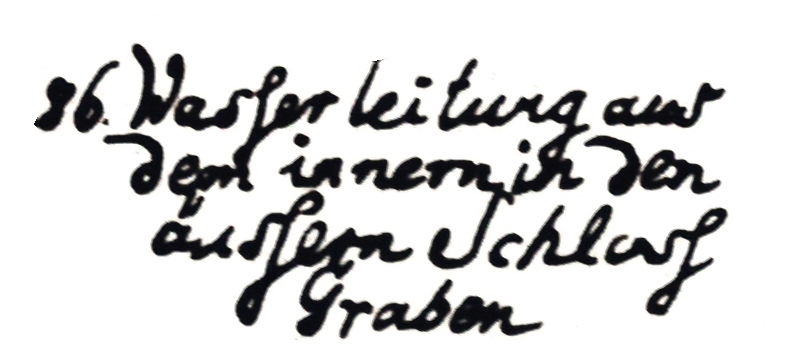 86. Wasserleitung aus
dem innern in den
äussern Schloss
Graben